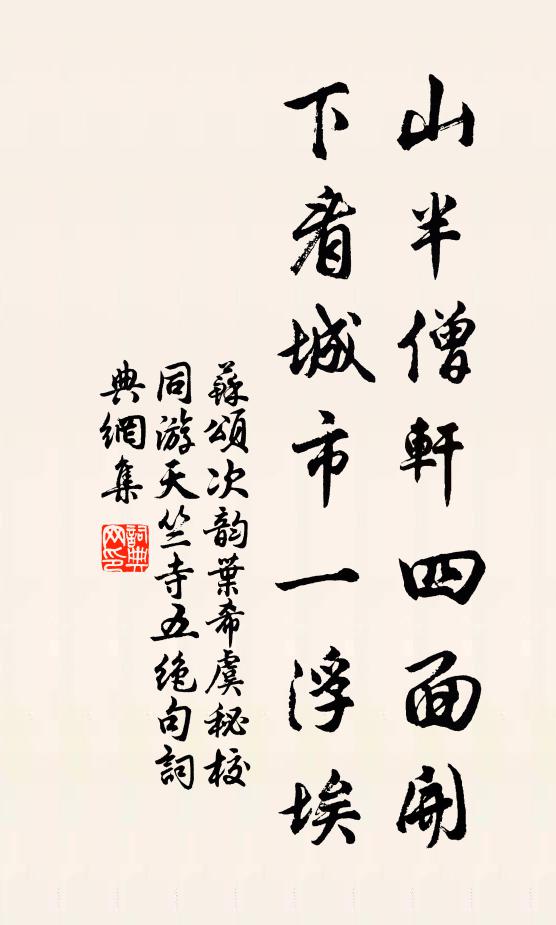 山半僧軒四面開
下看城市一浮埃
蘇頌次韵葉希虞秘校
同游天竺寺五绝句詞
典網集
詞典网印